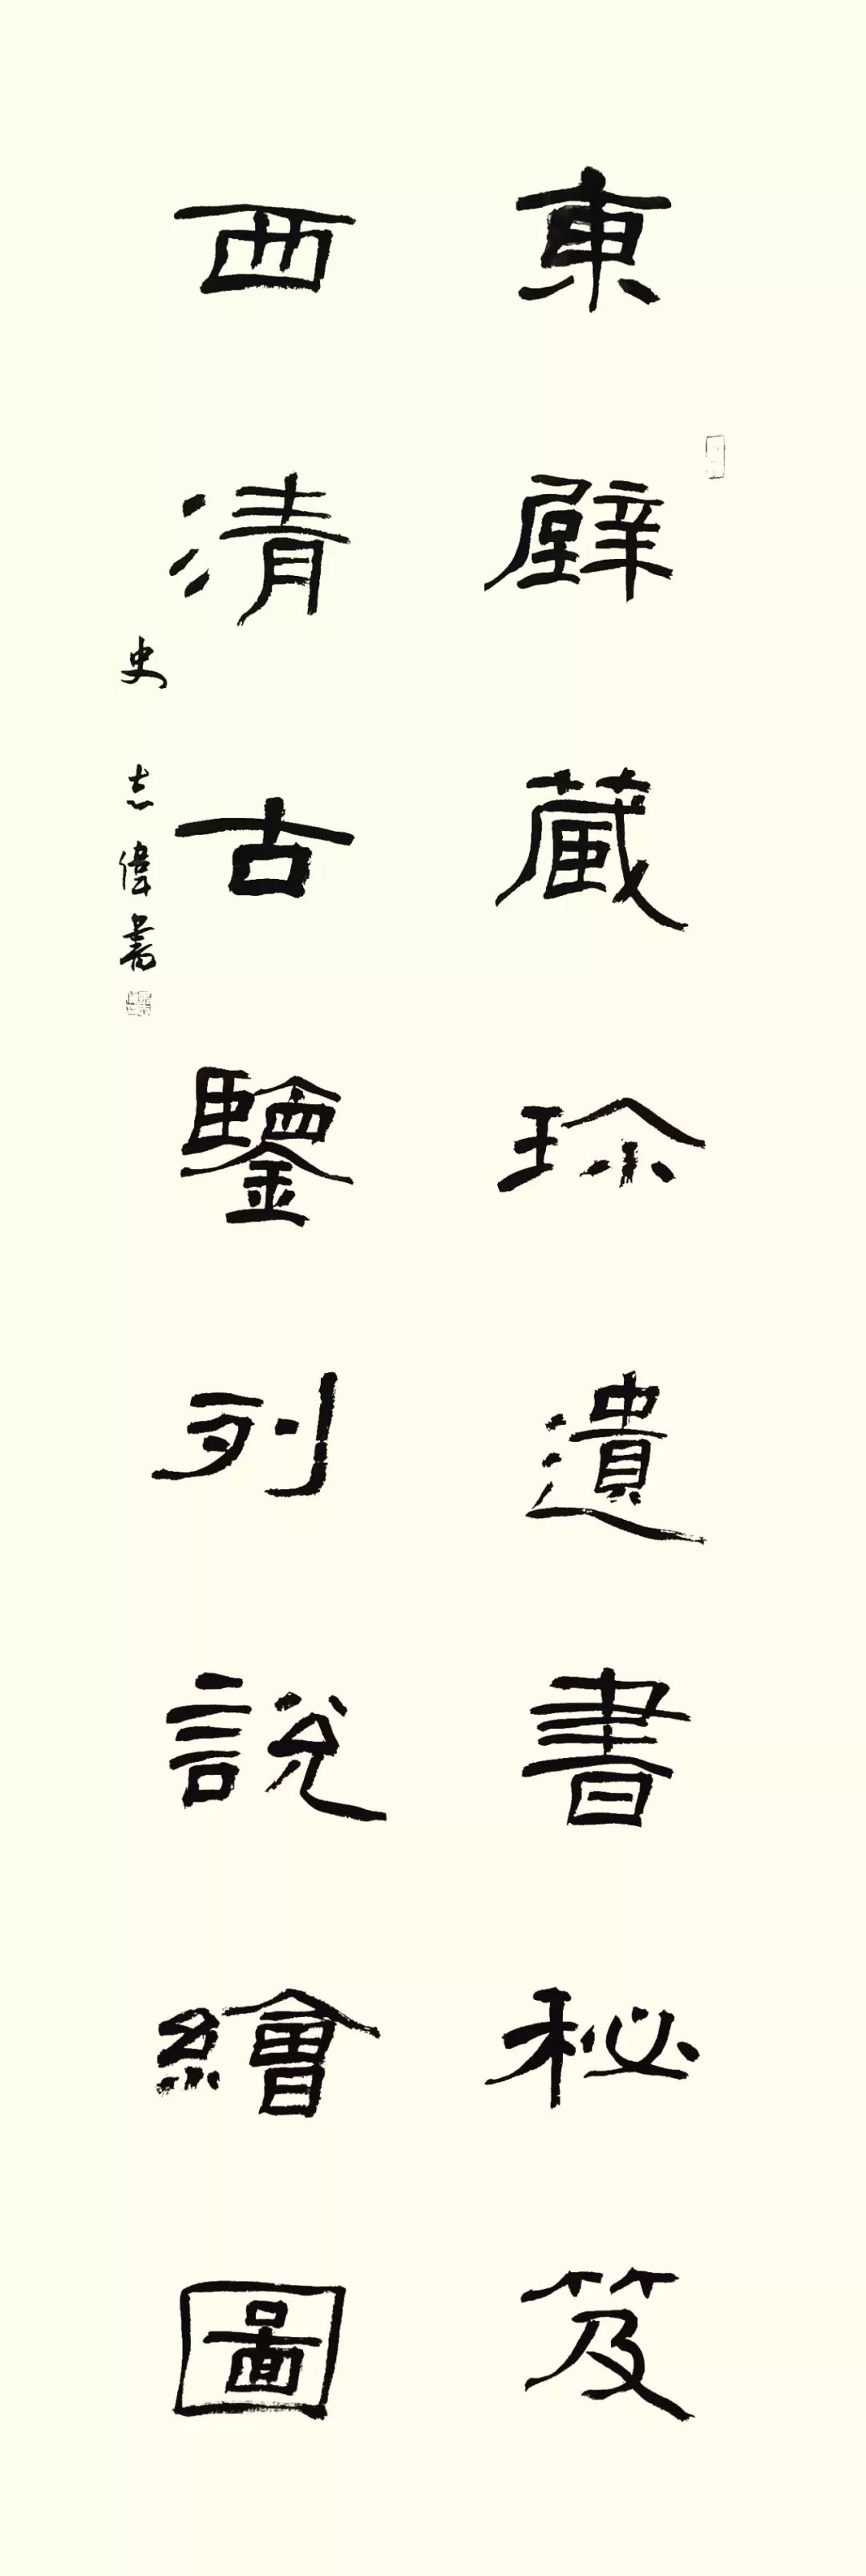 東壁藏珎遺書秘笈
西清古鑒列說繪圖
史志偉書